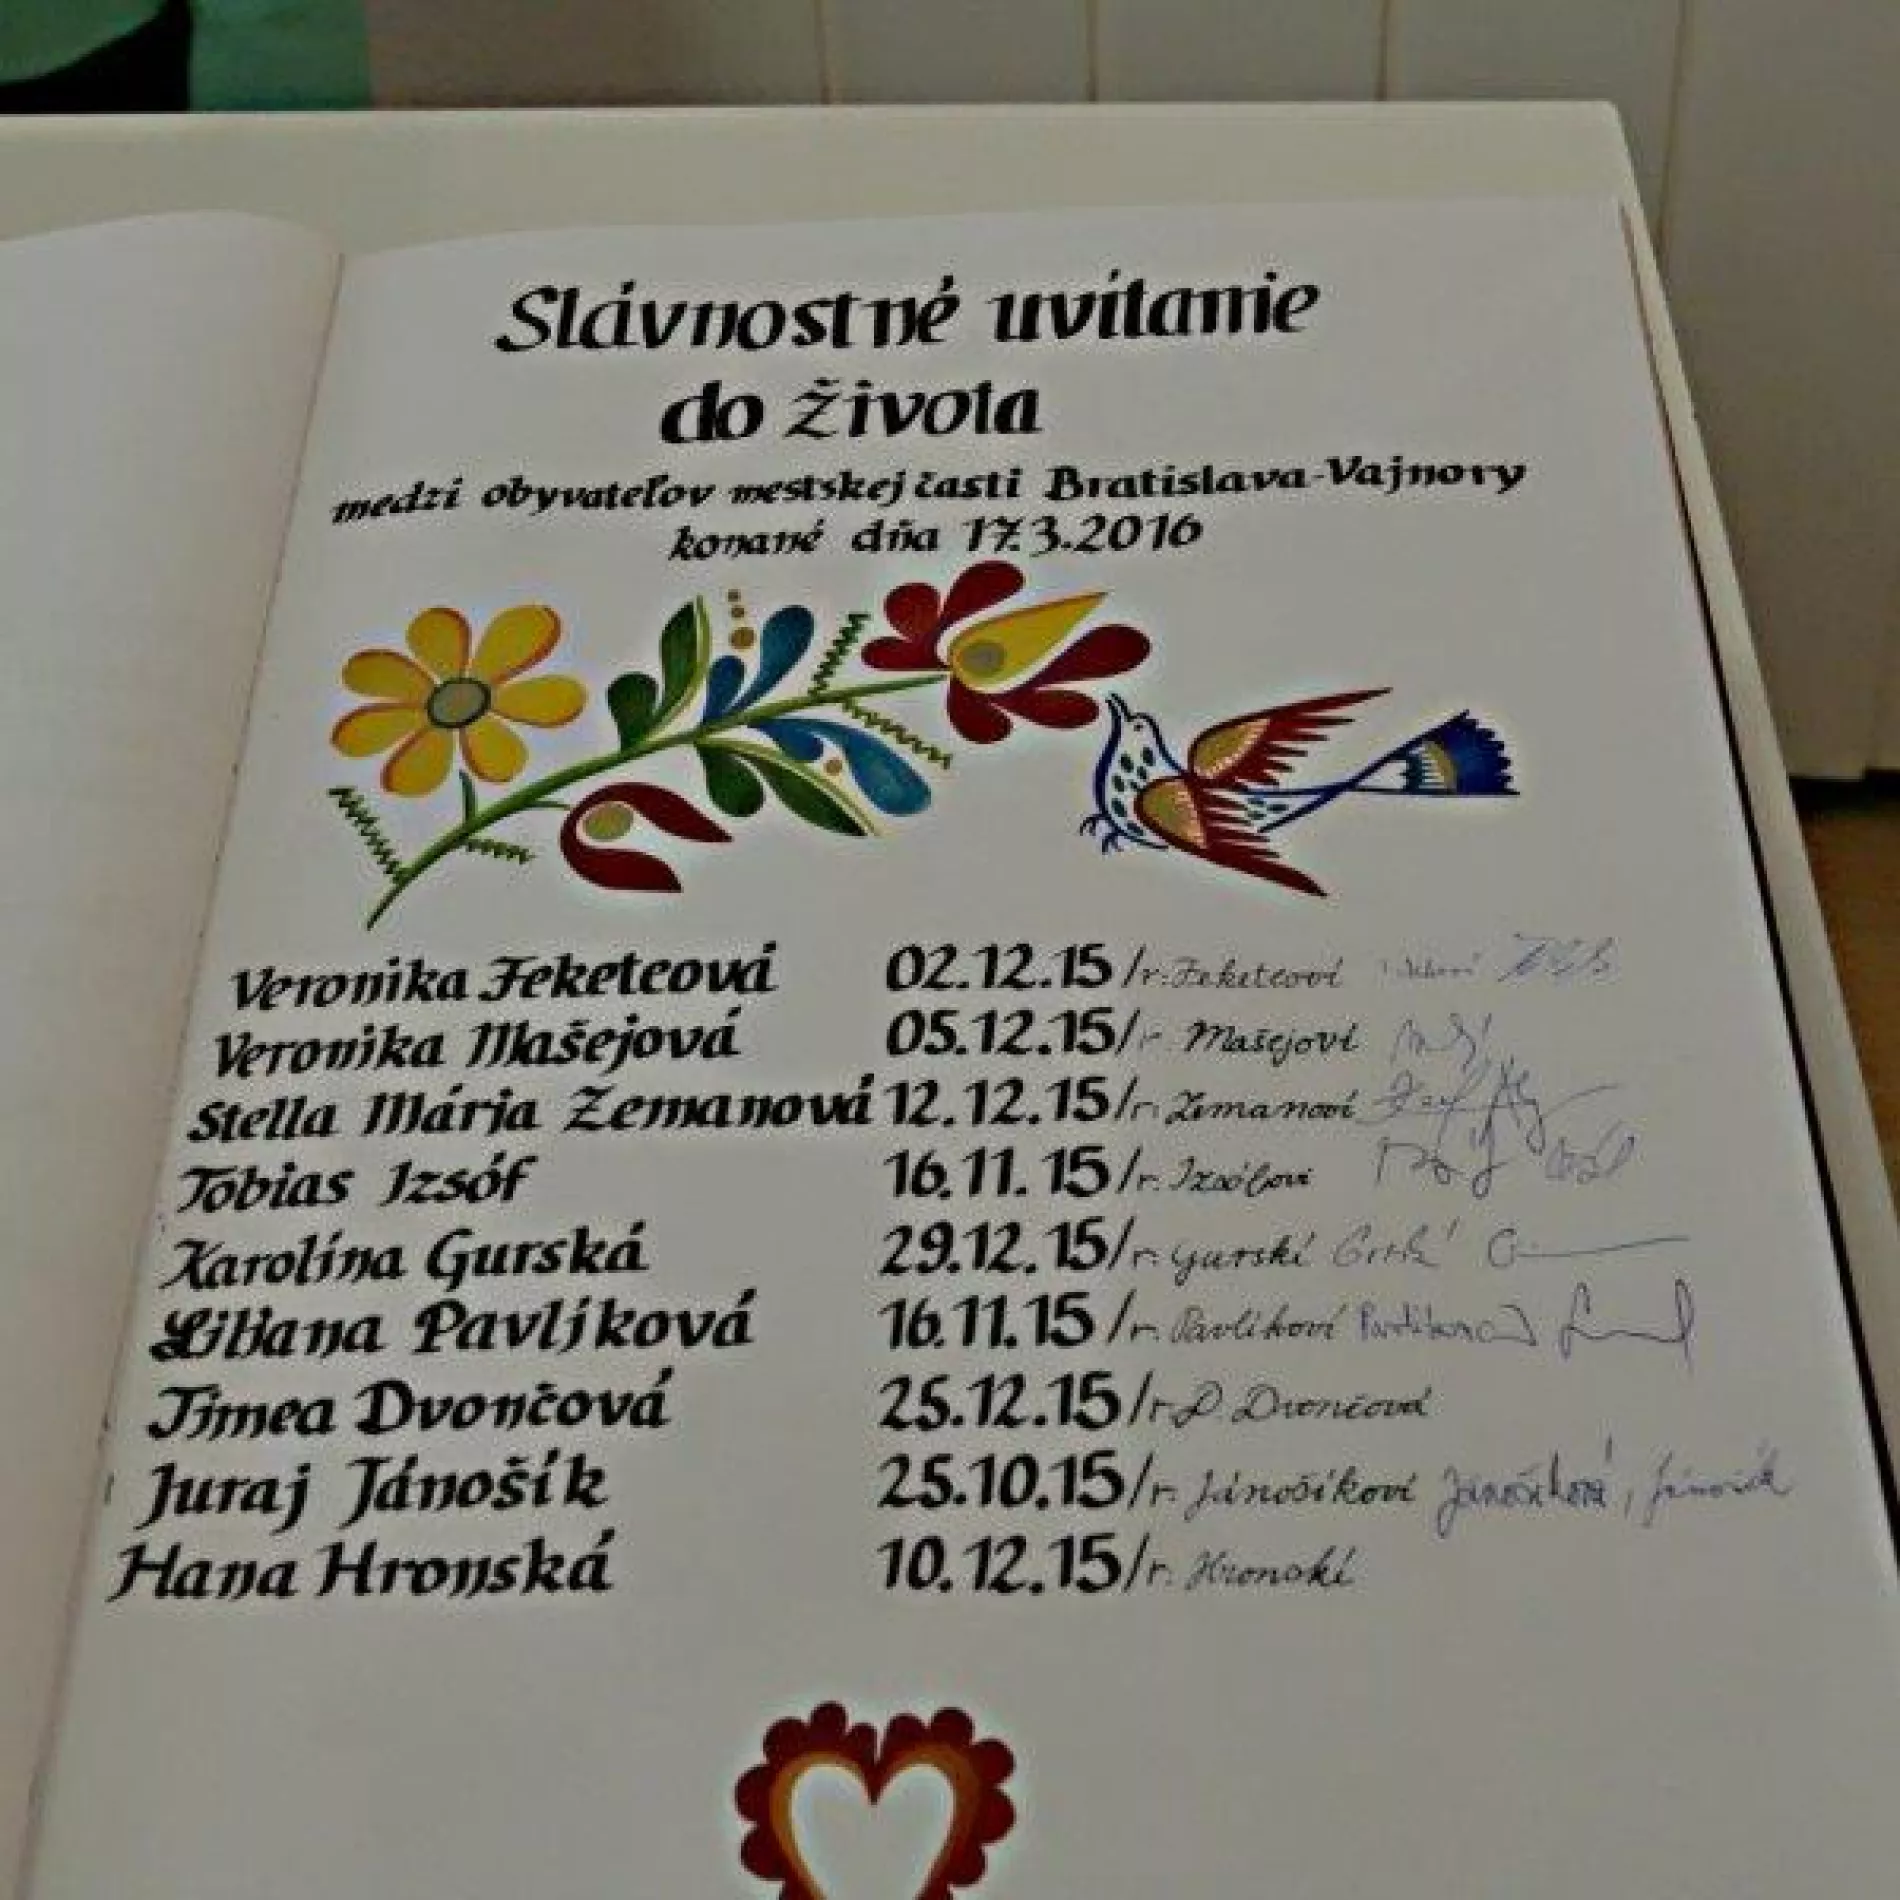 Slávnostné uvítanie
do života
medzi obyvateľov mestskej časti Bratislava-Vajnory
konané dňa 17.3.2016
Veronika Feketeová 02.12.15/r. Feketeoví
Veronika Mašejová 05.12.15/r. Mašejoví
Stella Mária Zemanová 12.12.15/r. Zemanoví
Tobias Izsóf 16.11.15/r. Izsófovi
Karolína Gurská 29.12.15/r. Gurskí
Liliana Pavlíková 16.11.15/r. Pavlíkoví Pavlíková
Tímea Dvončová 25.12.15/r. D. Dvončová
Juraj Jánošík 25.10.15/r. Jánošíkoví Jánošíková, Jánošík
Hana Hronská 10.12.15/r. Hronskí